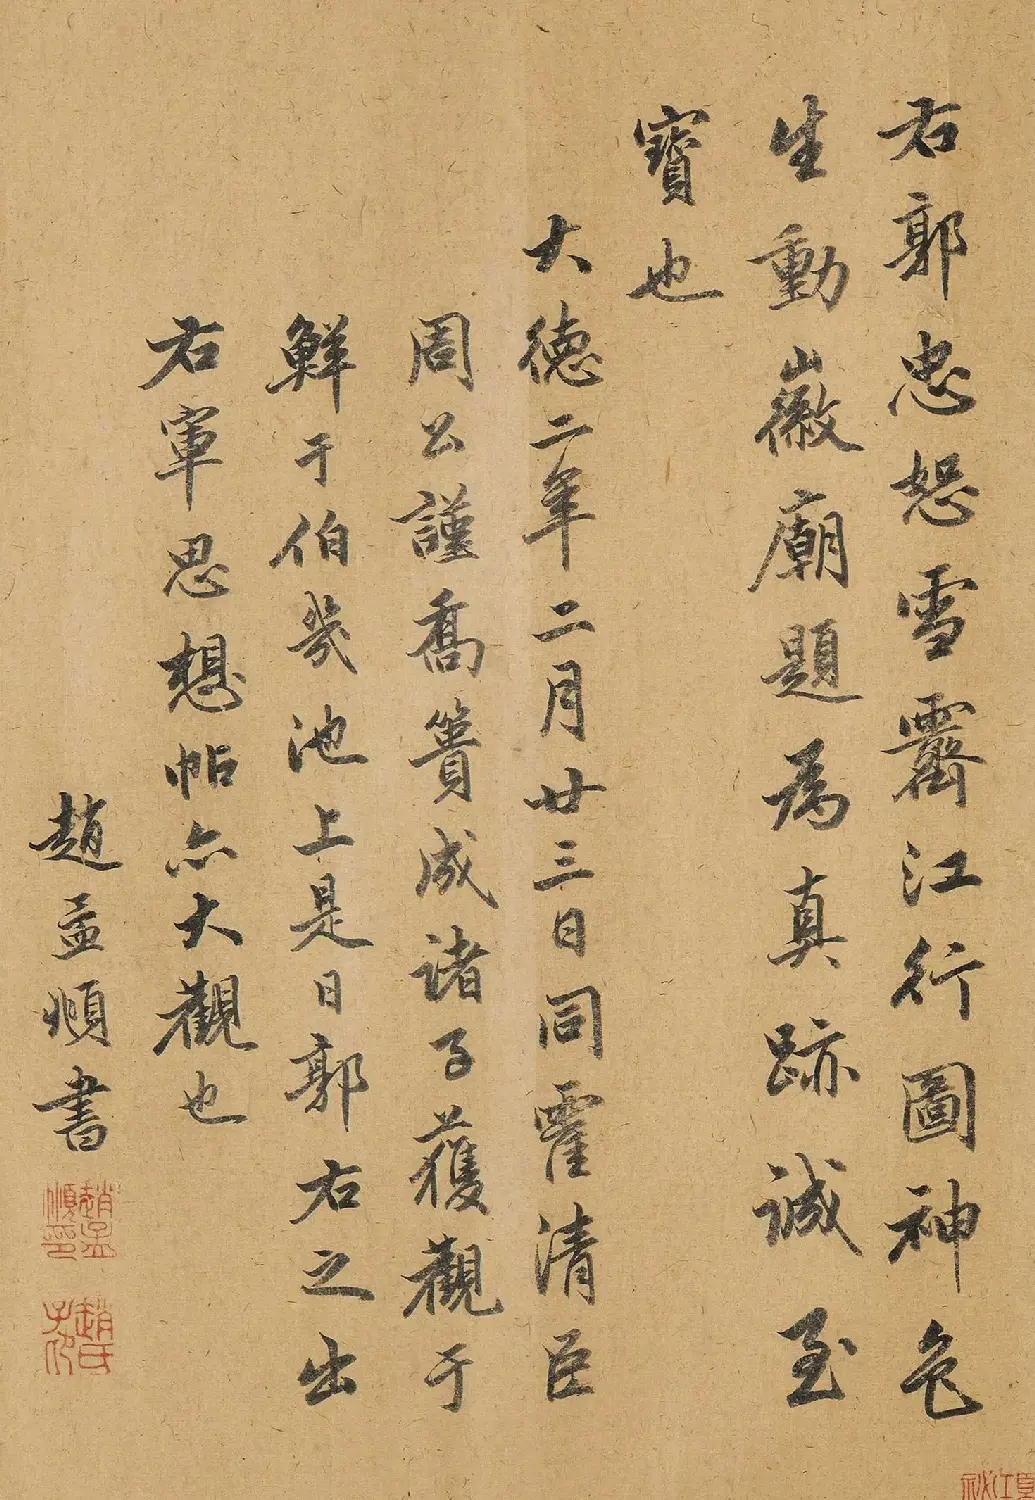 右郭忠恕雪霽江行圖神色
生動徽廟題為真跡誠至
寶也
大德二年二月廿三日同霍清臣
周公謹喬簣成諸子獲觀于
鮮于伯幾池上是日郭右之出
右軍思想帖亦大觀也
趙孟頫書
趙孟
頫印
趙氏
子昂